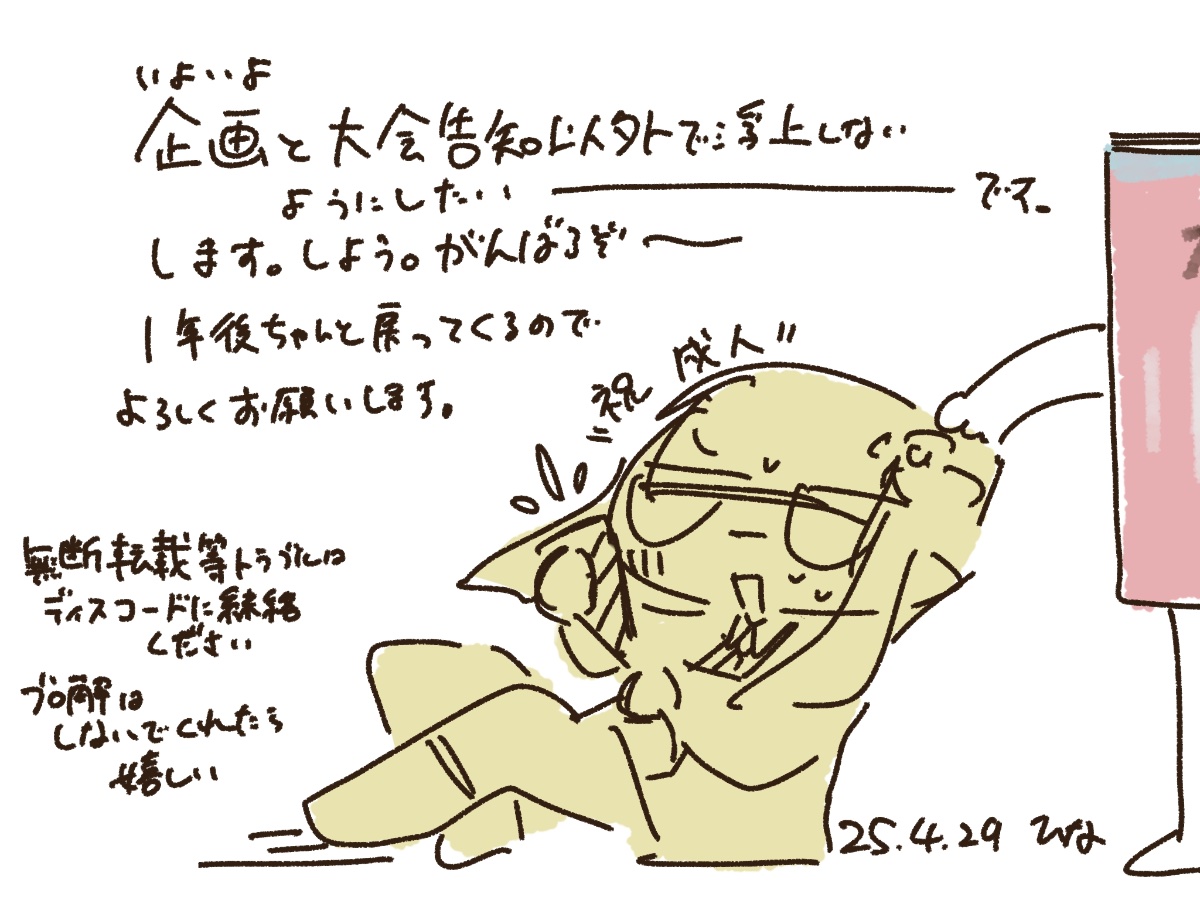 いよいよ
企画と大会告知以外で浮上しない
ようにしたい――――です。
します。しよう。がんばるぞ〜
1年後ちゃんと戻ってくるので
よろしくお願いします。
"祝 成人"
無断転載等トラブルは
ディスコードに連絡
ください
ブロ解は
しないでくれたら
嬉しい
25.4.29 ひな